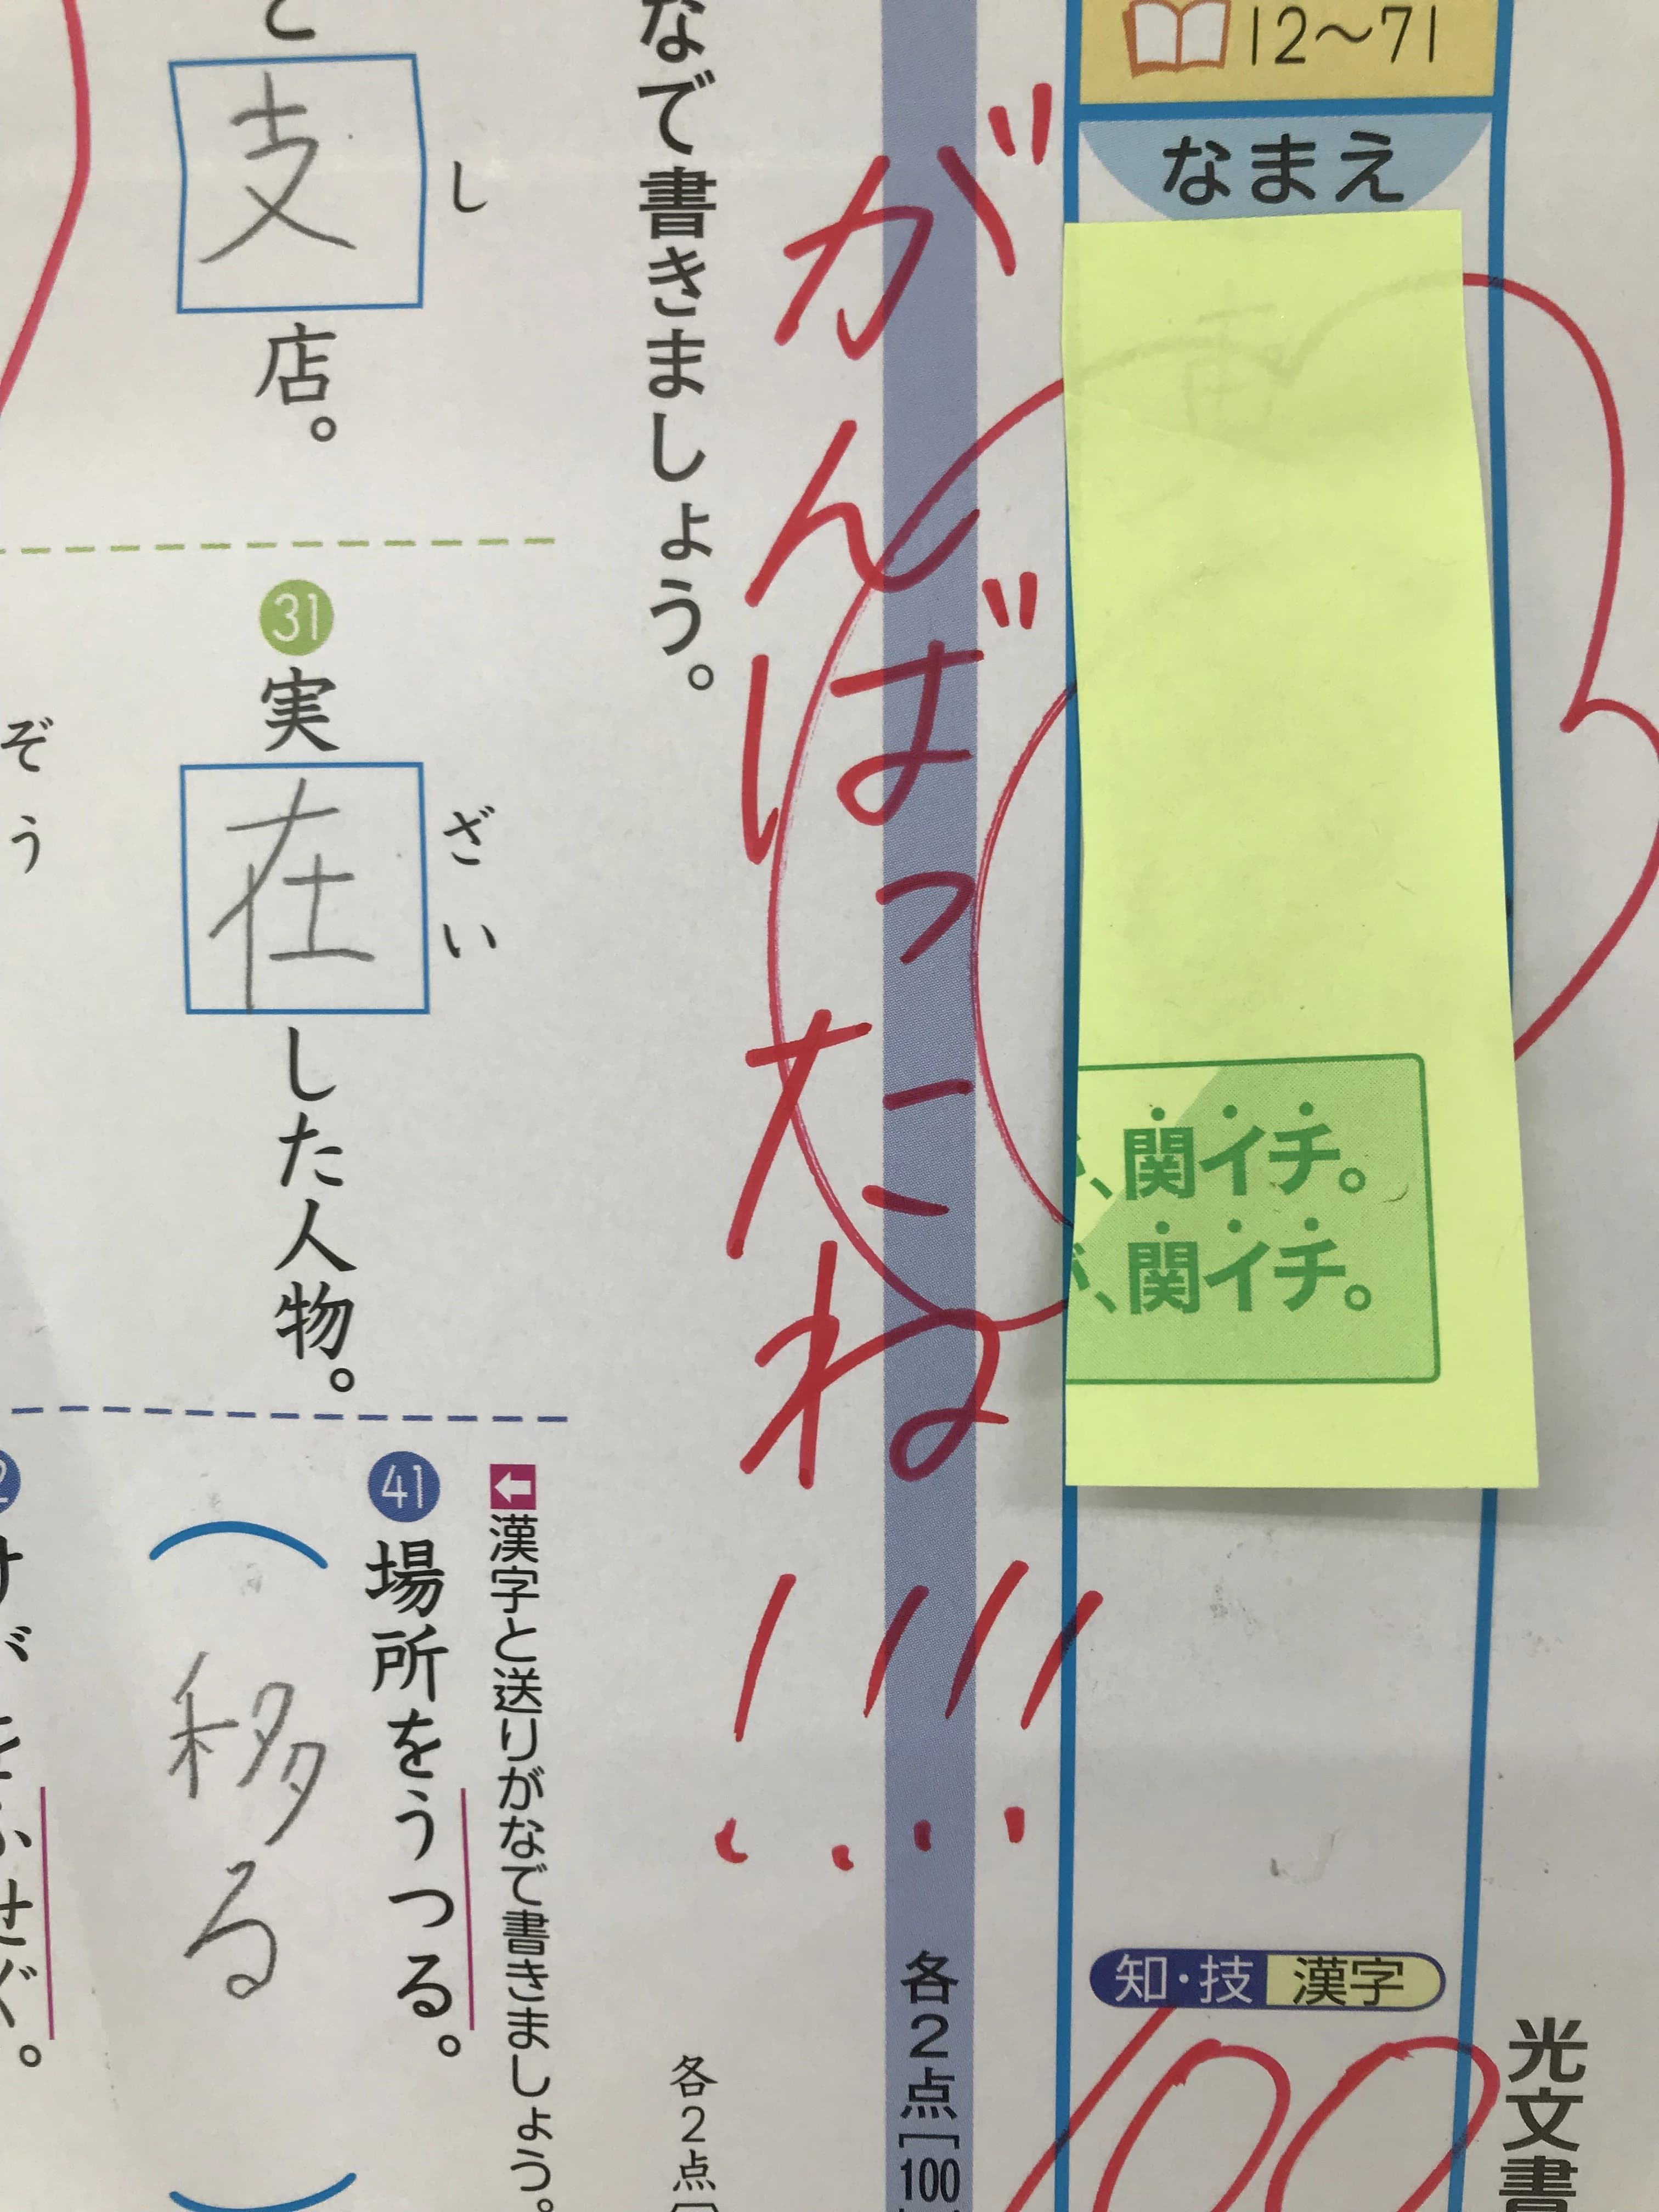 12～71
なまえ
、関イチ。
、関イチ。
知・技 漢字
100
光文書
がんばったね!!!!
各2点[100
なで書きましょう。
各2点
←漢字と送りがなで書きましょう。
し
支店。
31 実在した人物。
ざい
41 場所をうつる。
移る
ぞう
せぐ。